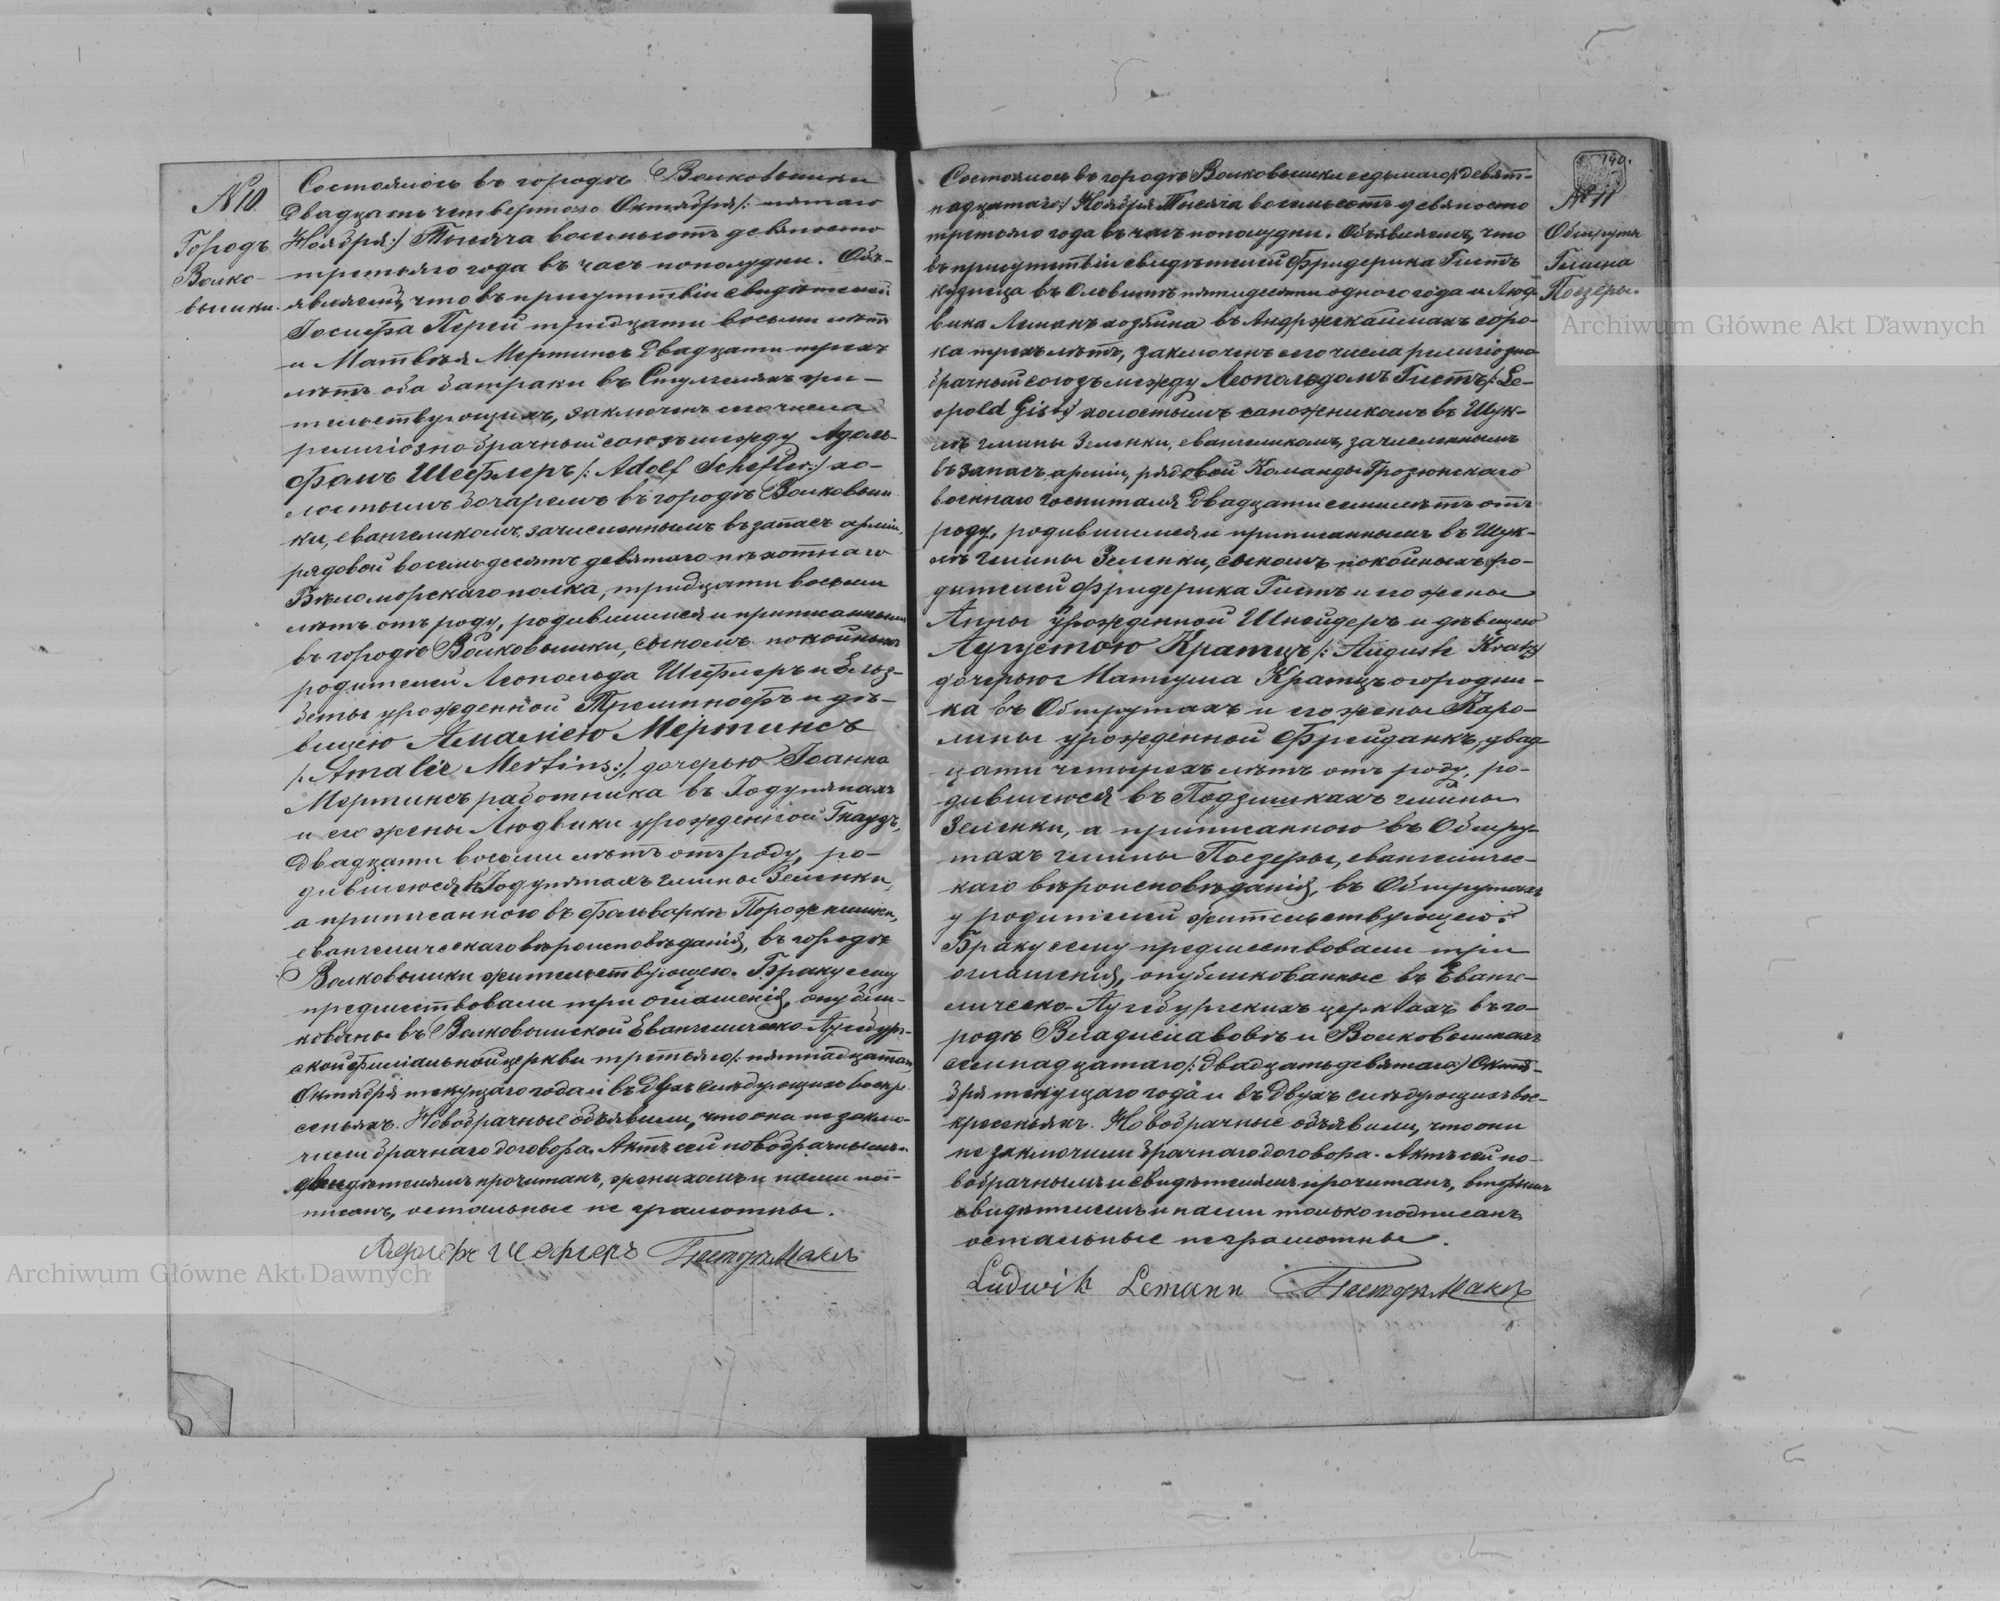 № 10.
Городъ
Волко-
вышки.
Состоялось въ городѣ Волковышки
двадцать четвертого Октября /: пятаго
Ноября :/ Тысяча восемьсотъ девяносто
третьяго года въ часъ пополудни. Объ-
являемъ, что въ присутствіи свидѣтелей
Іосифа Перей тридцати восьми лѣтъ
и Матвѣя Мертинсъ двадцати трехъ
лѣтъ оба батраки въ жи-
тельствующихъ, заключенъ сего числа
религіозно брачный союзъ между Адоль-
фомъ Шефлеръ /: Adolf Schefler :/ хо-
лостымъ бочаремъ въ городѣ Волковыш-
ки, евангеликомъ, зачисленнымъ въ запасъ арміи,
рядовой восемьдесятъ девятаго пѣхотнаго
Бѣломорскаго полка, тридцати восьми
лѣтъ отъ роду, родившимся и приписаннымъ
въ городѣ Волковышки, сыномъ покойныхъ
родителей Леопольда Шефлеръ и Елиз-
беты урожденной и дѣ-
вицею Амаліею Мертинсъ
/: Amalie Mertins :/, дочерью Іоанна
Мертинсъ работника въ Годупянахъ
и его жены Людвики урожденной Гнаудъ,
двадцати восьми лѣтъ отъ роду, ро-
дившеюся въ Годупянахъ гмины Зеленки,
а приписанною въ фольваркѣ
евангелическаго вѣроисповѣданія, въ городѣ
Волковышки жительствующею. Браку сему
предшествовали три оглашенія, опубли-
кованы въ Волковышской Евангелическо-Аугсбург-
ской филіальной церкви третьяго /: пятнадцатаго
Октября текущаго года и въ двухъ слѣдующихъ воскре-
сеньяхъ. Новобрачные объявили, что они не заклю-
чили брачнаго договора. Актъ сей новобрачнымъ и
свидѣтелямъ прочитанъ, женихомъ и нами под-
писанъ, остальные неграмотны.
Адольфъ Шефлеръ Пасторъ Макъ
140.
№ 11
Обшруты
Гмина
Поезеры.
Состоялось въ городѣ Волковышки седьмаго /: девят-
надцатаго :/ Ноября Тысяча восемьсотъ девяносто
третьяго года въ часъ пополудни. Объявляемъ, что
въ присутствіи свидѣтелей Фридерика Гистъ
кузнеца въ пятидесяти одного года и Люд-
вика Леманъ хозяина въ соро-
ка трехъ лѣтъ, заключенъ сего числа религіозно
брачный союзъ между Леопольдомъ Гистъ /: Le-
opold Gist :/ холостымъ сапожникомъ въ Шук-
лѣ гмины Зеленки, евангеликомъ, зачисленнымъ
въ запасъ арміи, рядовой Команды Грозненскаго
военнаго госпиталя двадцати семи лѣтъ отъ
роду, родившимся и приписаннымъ въ Шук-
лѣ гмины Зеленки, сыномъ покойныхъ ро-
дителей Фридерика Гистъ и его жены
Анны урожденной Шнейдеръ и дѣвицею
Аугустою Кратцъ /: Auguste Kratz :/
дочерью Матеуша Кратцъ огородни-
ка въ Обшрутахъ и его жены Каро-
лины урожденной Фрейданкъ, двад-
цати четырехъ лѣтъ отъ роду, ро-
дившеюся въ Подзишкахъ гмины
Зеленки, а приписанною въ Обшру-
тахъ гмины Поезеры, евангеличес-
каго вѣроисповѣданія, въ Обшрутахъ
у родителей жительствующею.
Браку сему предшествовали три
оглашенія, опубликованные въ Еванге-
лическо-Аугсбургскихъ церквахъ въ го-
родѣ Владиславовѣ и Волковышкахъ
семнадцатаго /: двадцать девятаго :/ Октя-
бря текущаго года и въ двухъ слѣдующихъ вос-
кресеньяхъ. Новобрачные объявили, что они
не заключили брачнаго договора. Актъ сей но-
вобрачнымъ и свидѣтелямъ прочитанъ, вторымъ
свидѣтелемъ и нами только подписанъ,
остальные неграмотны.
Ludwik Lemann Пасторъ Макъ
Archiwum Główne Akt Dawnych
Archiwum Główne Akt Dawnych